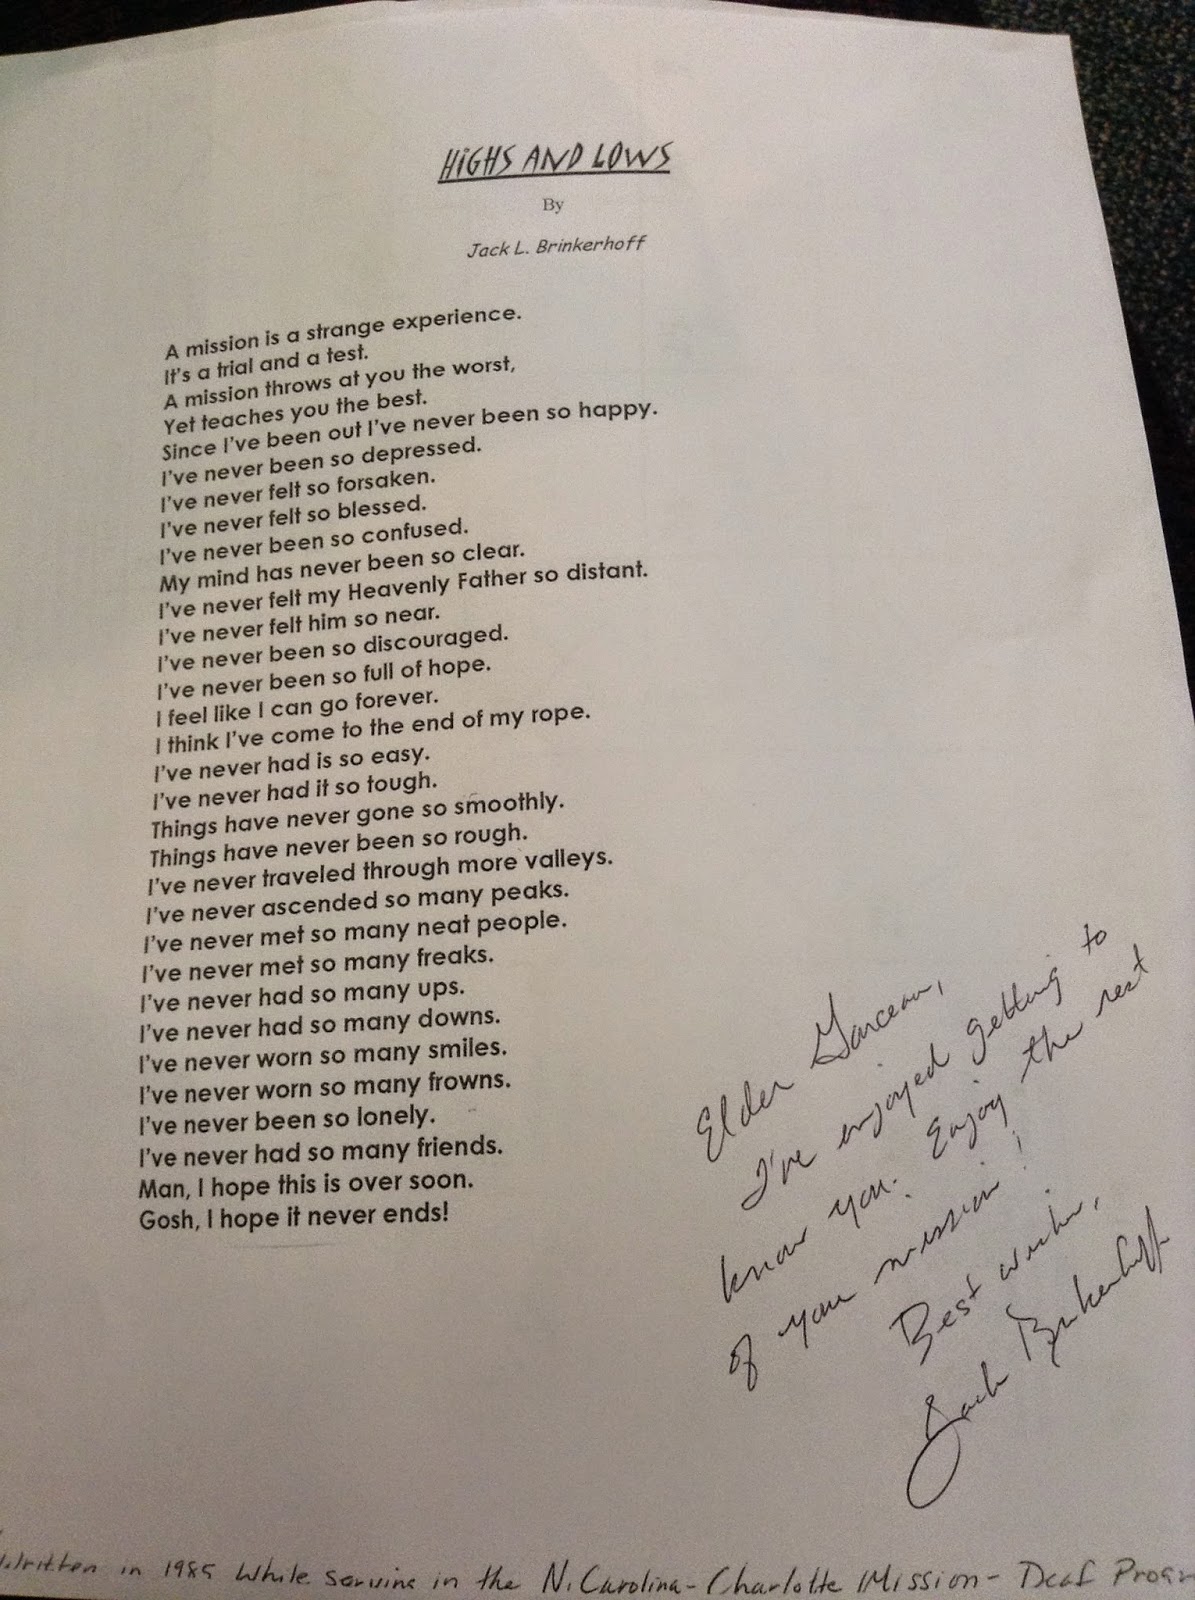 HIGHS AND LOWS
By
Jack L. Brinkerhoff
A mission is a strange experience.
It's a trial and a test.
A mission throws at you the worst,
Yet teaches you the best.
Since I've been out I've never been so happy.
I've never been so depressed.
I've never felt so forsaken.
I've never felt so blessed.
I've never been so confused.
My mind has never been so clear.
I've never felt my Heavenly Father so distant.
I've never felt him so near.
I've never been so discouraged.
I've never been so full of hope.
I feel like I can go forever.
I think I've come to the end of my rope.
I've never had is so easy.
I've never had it so tough.
Things have never gone so smoothly.
Things have never been so rough.
I've never traveled through more valleys.
I've never ascended so many peaks.
I've never met so many neat people.
I've never met so many freaks.
I've never had so many ups.
I've never had so many downs.
I've never worn so many smiles.
I've never worn so many frowns.
I've never been so lonely.
I've never had so many friends.
Man, I hope this is over soon.
Gosh, I hope it never ends!
Elder Garceau,
I've enjoyed getting to
know you. Enjoy the rest
of your mission!
Best wishes,
Jack Brinkerhoff
Written in 1985 While serving in the N. Carolina - Charlotte Mission - Deaf